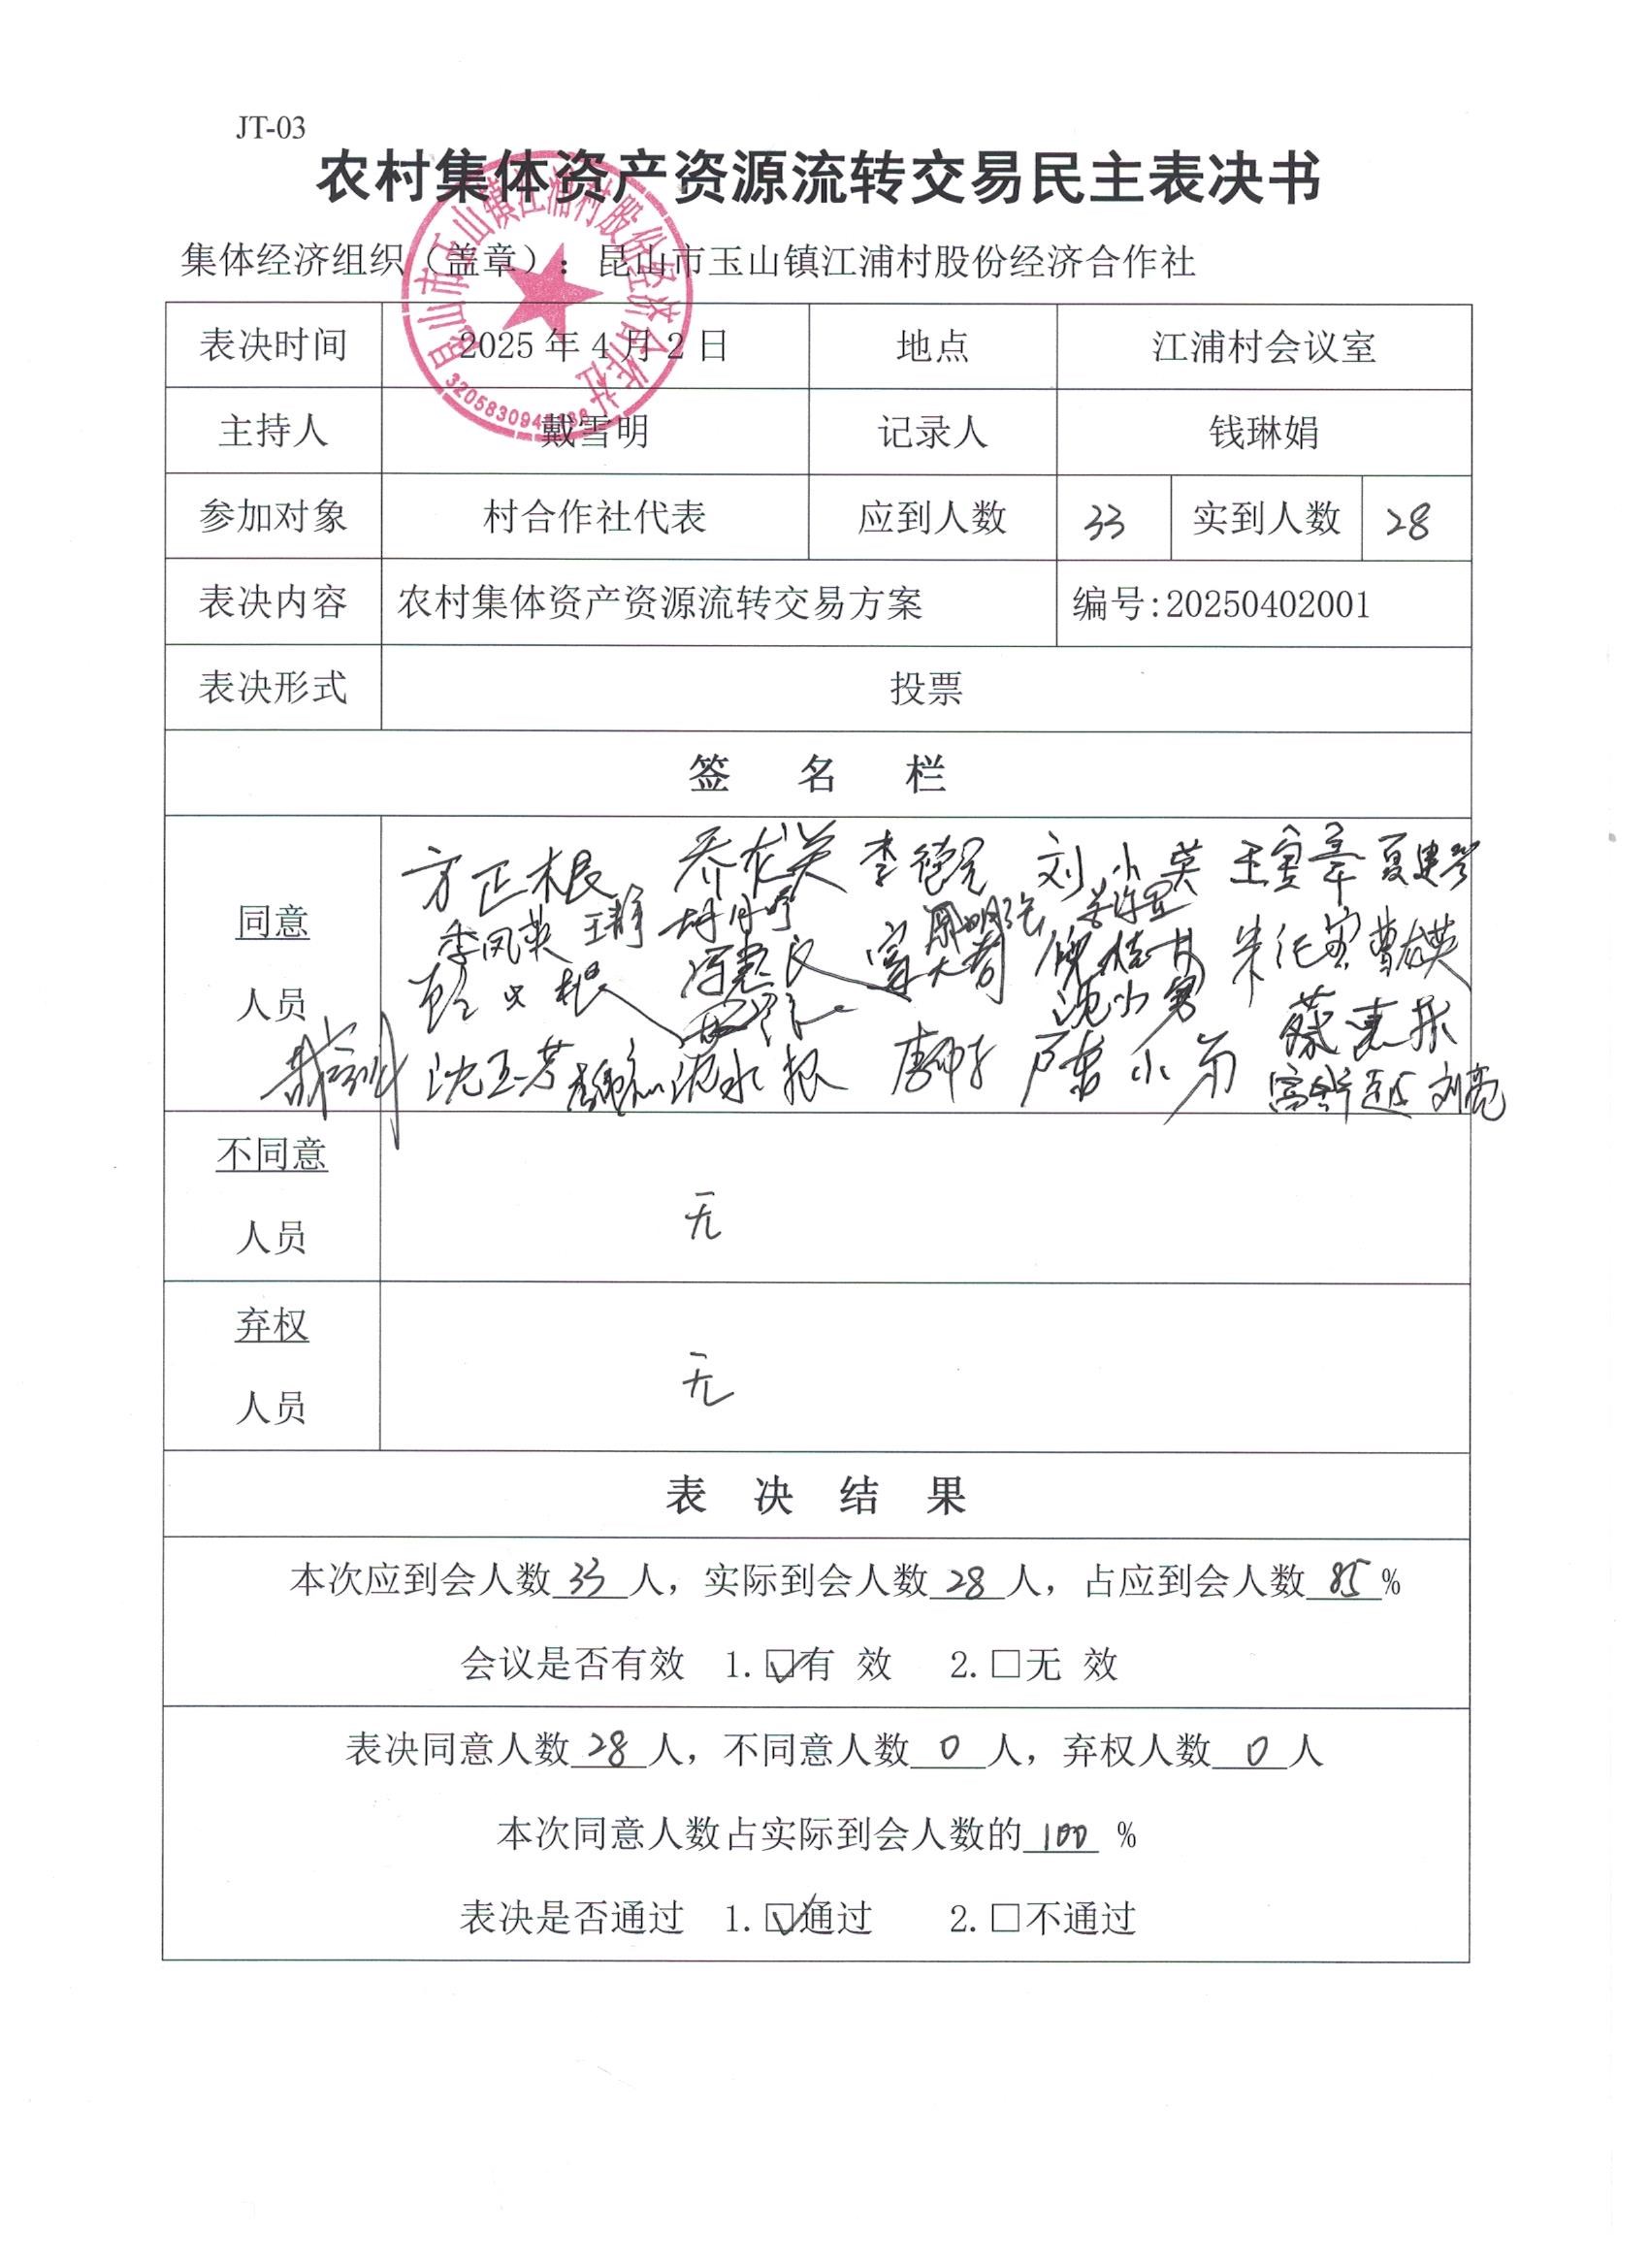 JT-03
农村集体资产资源流转交易民主表决书
集体经济组织（盖章）：昆山市玉山镇江浦村股份经济合作社
昆山市玉山镇江浦村股份经济合作社
表决时间 2025年4月2日 地点 江浦村会议室
主持人 戴雪明 记录人 钱琳娟
参加对象 村合作社代表 应到人数 33 实到人数 28
表决内容 农村集体资产资源流转交易方案 编号:20250402001
表决形式 投票
签 名 栏
同意
人员
方正根 乔龙英 李德元 刘小英 王寅辛
季凤英 王静 周明强
朱仁宝
沈小男 蔡惠根
沈玉芳 刘亮
不同意
人员
无
弃权
人员
无
表 决 结 果
本次应到会人数33人，实际到会人数28人，占应到会人数85%
会议是否有效 1.☑有 效 2.□无 效
表决同意人数28人，不同意人数0人，弃权人数0人
本次同意人数占实际到会人数的100 %
表决是否通过 1.☑通过 2.□不通过